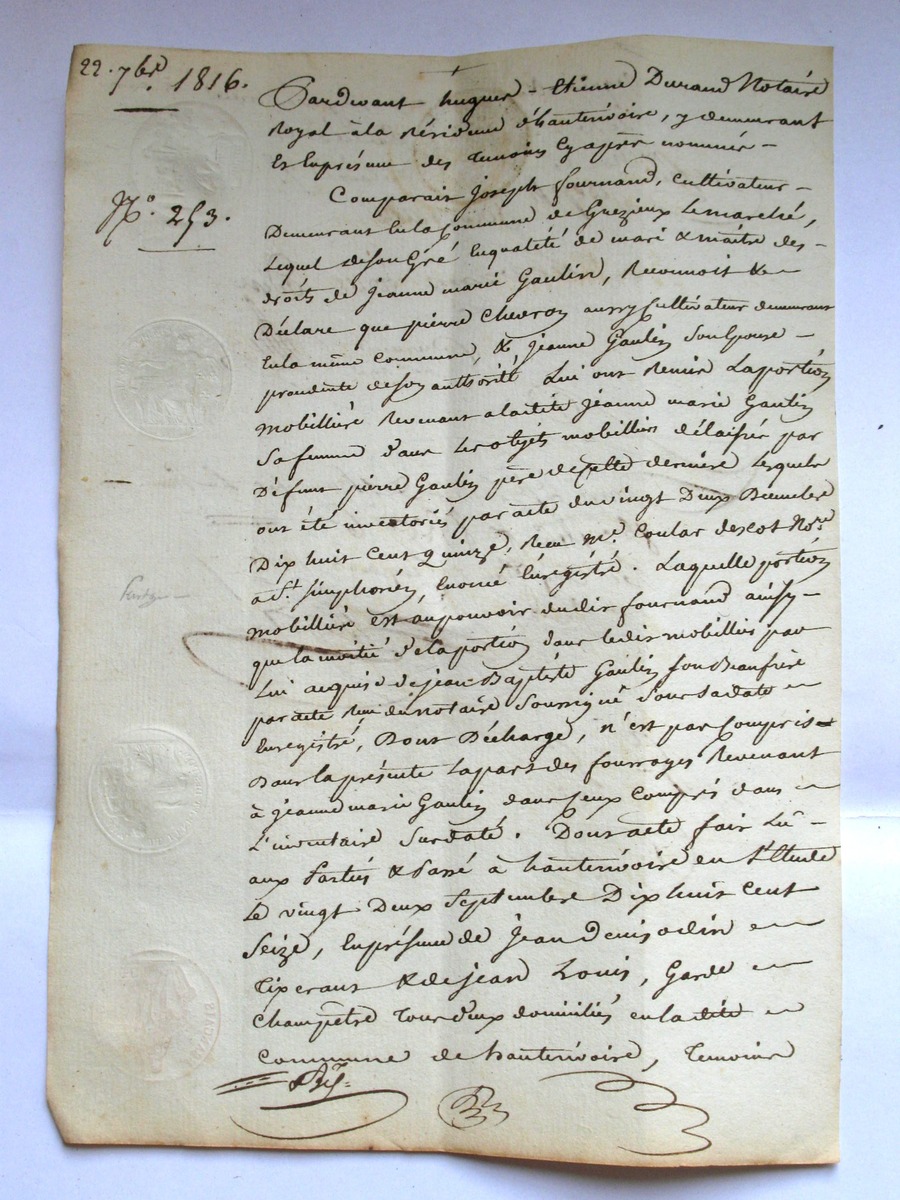 22. 7bre. 1816.
No. 253.
Pardevant hugues - Etienne Durand Notaire
Royal à la Résidence d'hauterivoire, y demeurant
Et En présence des Temoins Cy après nommés -
Comparait Joseph fournand, cultivateur -
Demeurant En la Commune de Grezieux Lemarché,
Lequel de son Gré En qualité de mari & maitre des -
droits de Jeanne marie Gaulin, Reconnoit &
Déclare que pierre Chevron aussy Cultivateur demeurant
En la même Commune, & Jeanne Gaulin Son Epouse -
procedente de Son authorité Lui ont Remis La portion
Mobilliére Revenant a laditte Jeanne marie Gaulin
Sa femme dans Les objets mobilliers délaissés par
Défunt pierre Gaulin père de cette derniere Lesquels
ont été inventoriés par acte du vingt Deux Decembre
Dix huit Cent Quinze, Recu Me. Coular descot Nore
a St. Simphorien, Enoncé Enregistré. Laquelle portion
mobilliére est au pouvoir dudit fournand ainsy -
que la moitié de la portion dans ledit mobillier par
Lui acquise de jean Baptiste Gaulin son Beaufrére
par acte Recu du notaire Soussigné Sous Sa date
Enregistré, Dont Décharge, n'est pas Compris
Dans la présente La part des fourrages Revenant
à jeanne marie Gaulin dans Ceux Compris dans
L'inventaire Surdaté. Dont acte fait Lû -
aux Parties & Passé à hauterivoire en L'Etude
Le vingt Deux Septembre Dix huit Cent
Seize, En présence de Jean Denis odin
Tixerant & de jean Louis, Garde
Champêtre Tous deux domiciliés en la dite
Commune de hauterivoire, Temoins